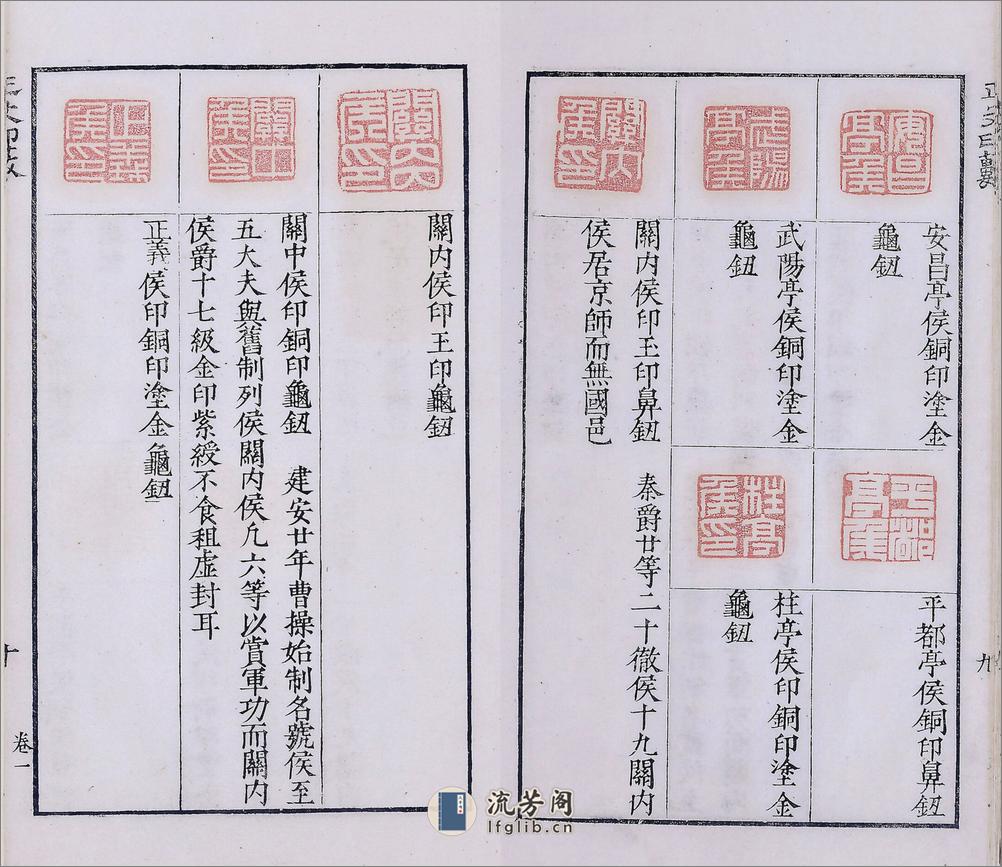 安昌亭侯
安昌亭侯銅印塗金
龜鈕
平都亭侯
平都亭侯銅印鼻鈕
武陽亭侯
武陽亭侯銅印塗金
龜鈕
柱亭侯印
柱亭侯印銅印塗金
龜鈕
關内侯印
關内侯印玉印鼻鈕 秦爵廿等二十徹侯十九關内
侯居京師而無國邑
九
關内侯印
關内侯印玉印龜鈕
關中侯印
關中侯印銅印龜鈕 建安廿年曹操始制名號侯至
五大夫與舊制列侯關内侯凡六等以賞軍功而關内
侯爵十七級金印紫綬不食租虛封耳
正義侯印
正義侯印銅印塗金龜鈕
十
卷一
流芳阁
lfglib.cn